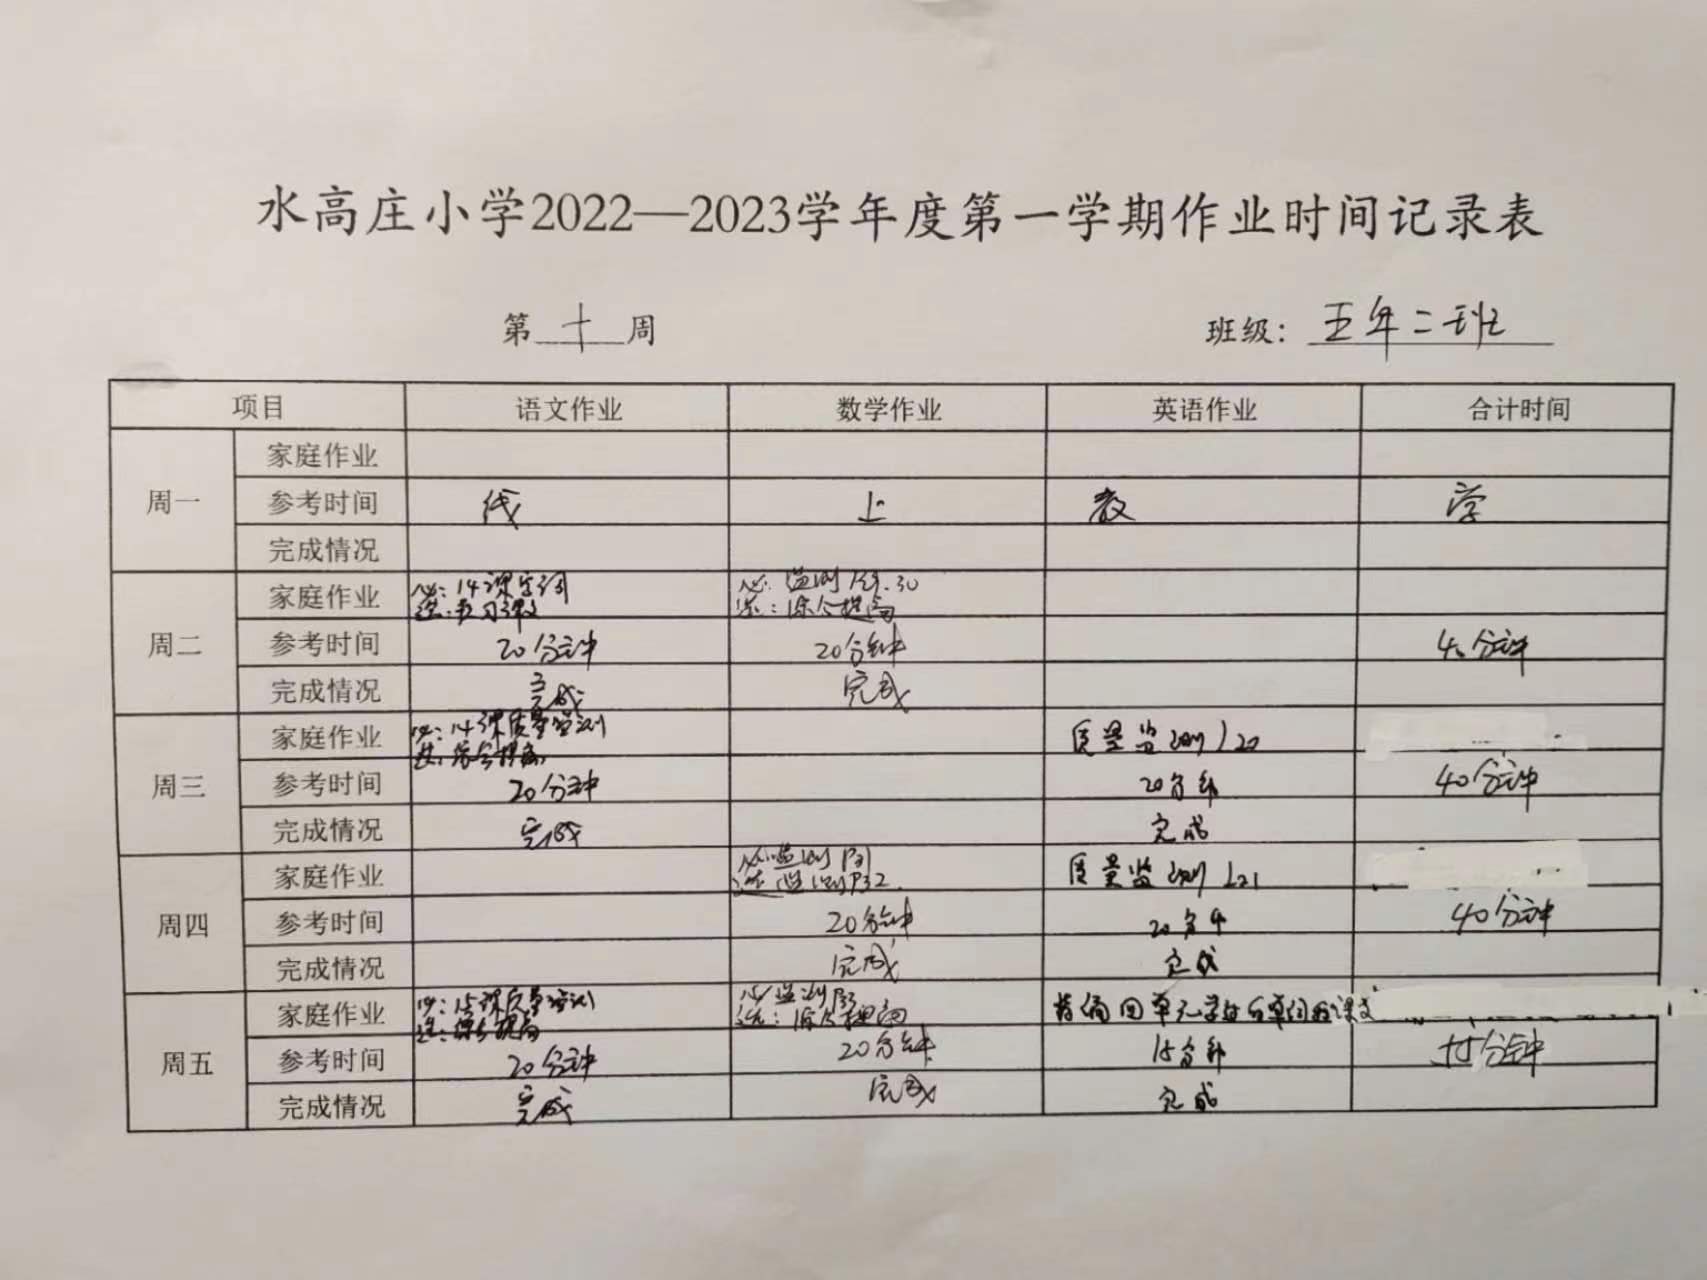 水高庄小学2022—2023学年度第一学期作业时间记录表
第 十 周 班级: 五年二班
项目 语文作业 数学作业 英语作业 合计时间
周一
家庭作业
参考时间 线 上 教 学
完成情况
周二
家庭作业 必:14课字词 必:监测 30
选:复习课文 选:综合提高
参考时间 20分钟 20分钟 40分钟
完成情况 完成 完成
周三
家庭作业 必:14课质量监测 质量监测 L20
选:综合提高
参考时间 20分钟 20分钟 40分钟
完成情况 完成 完成
周四
家庭作业 必:监测P31 质量监测 L21
选:监测P32
参考时间 20分钟 20分钟 40分钟
完成情况 完成 完成
周五
家庭作业 必:15课质量监测 必:监测P33 单元 单词和课文
选:综合提高 选:综合提高
参考时间 20分钟 20分钟 15分钟 55分钟
完成情况 完成 完成 完成